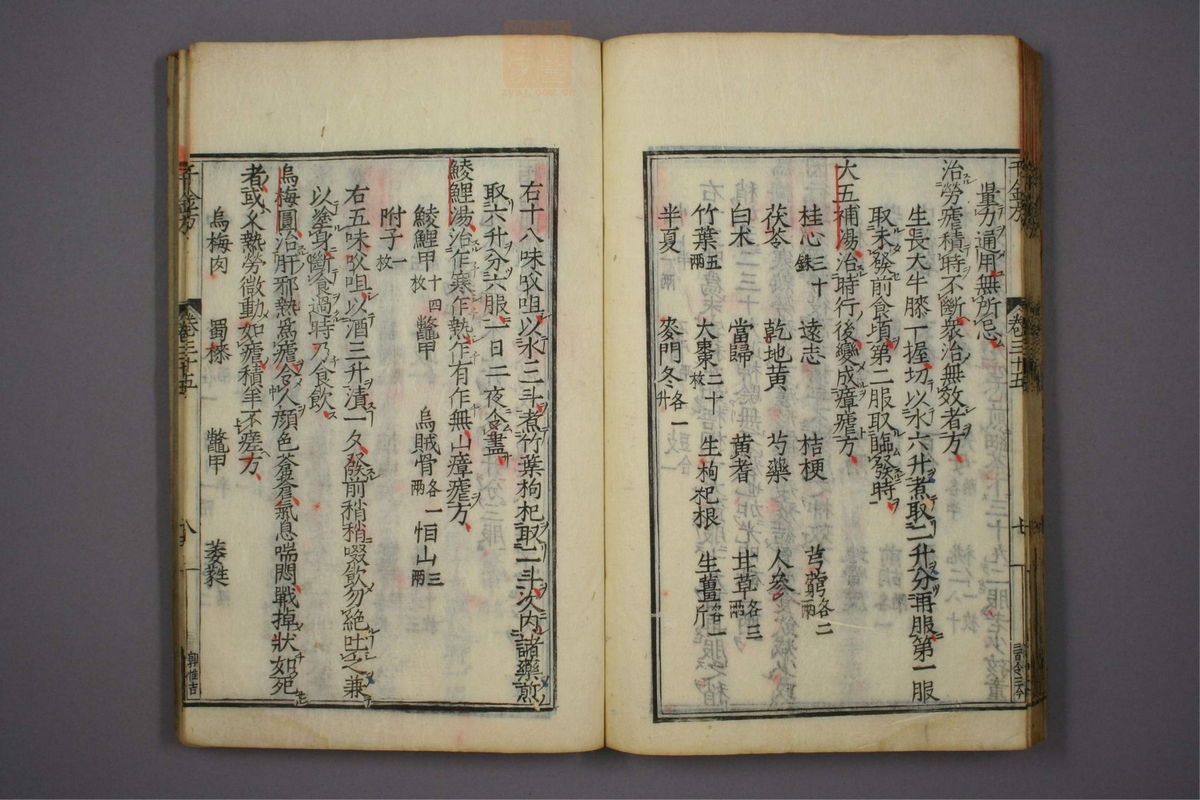 量力通用無所忌
治勞瘧積時不斷衆治無效者方
生長大牛膝一握切以水六升煮取二升分再服第一服
取未發前食頃第二服取臨發時
大五補湯治時行後變成瘴瘧方
桂心三十銖 遠志 桔梗 芎藭各二兩
茯苓 乾地黄 芍藥 人參
白朮 當歸 黄耆 甘草各三兩
竹葉五兩 大棗二十枚 生枸杞根 生薑各一斤
半夏 麥門冬各一升
千金方 卷三十五 七
右十八味㕮咀以水三斗煮竹葉枸杞取二斗次内諸藥煎
取六升分六服一日二夜令盡
鯪鯉湯治作寒作熱作有作無山瘴瘧方
鯪鯉甲十四枚 鼈甲 烏賊骨各一兩 恒山三兩
附子一枚
右五味㕮咀以酒三升漬一夕發前稍稍啜飲勿絶吐之兼
以塗身斷食過時乃食飲
烏梅圓治肝邪熱爲瘧令人顔色蒼蒼氣息喘悶戰掉狀如死
者或久熱勞微動如瘧積年不瘥方
烏梅肉 蜀漆 鼈甲 萎蕤
千金方 卷三十五 八 郭惟吉